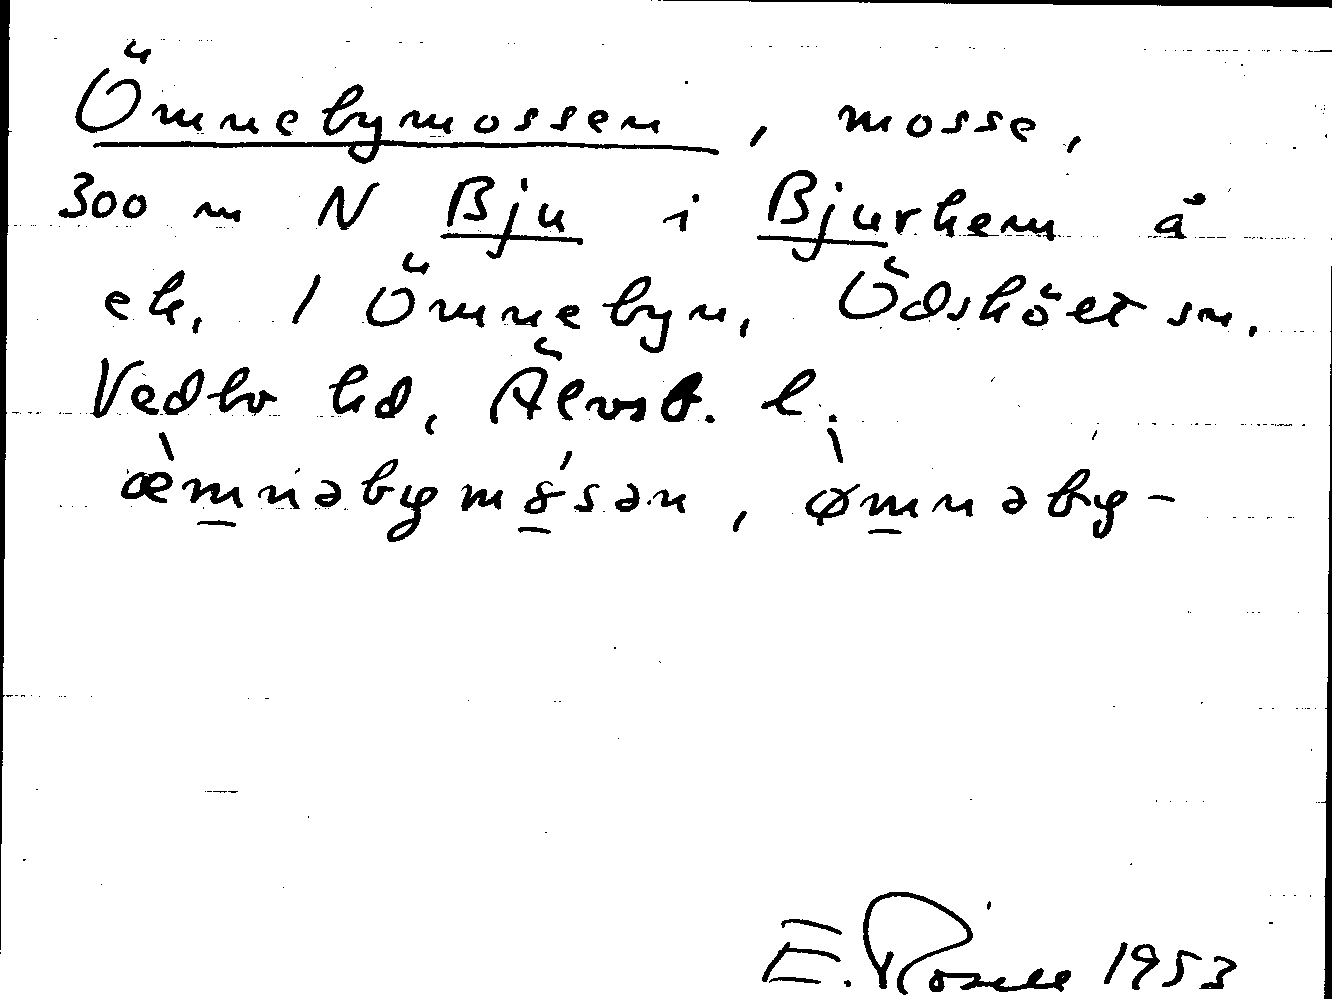 Ömnebymossen, mosse,
300 m N Bju i Bjurhem å
ek. 1 Ömnebyn, Ödskölt sn.
Vedbo hd, Älvsb. l.
œ̀mnəbymɷ́sən, ø̀mnəby-
E. Rosell 1953